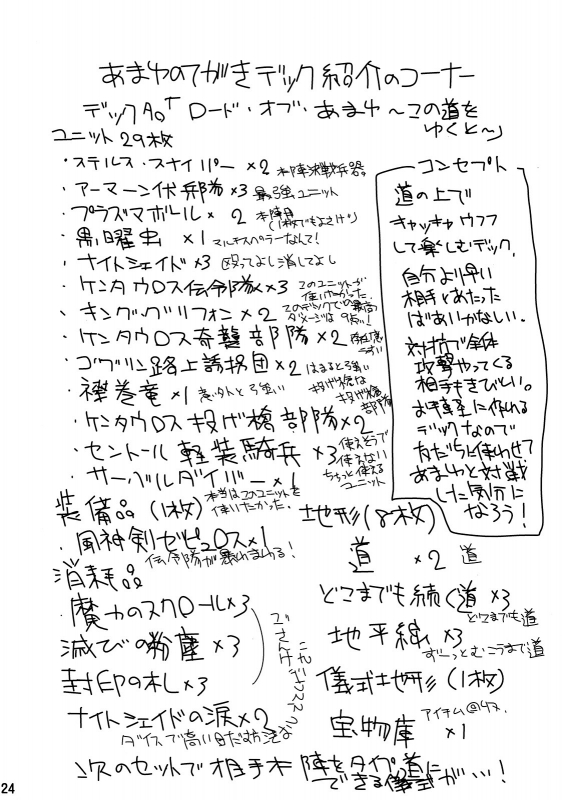 あまゆのてがきデック紹介のコーナー
デック名「ロード・オブ・あまゆ ～この道を
ゆくと～」
ユニット29枚
・ステルス・スナイパー ×2 本陣決戦兵器
・アーマーン伏兵隊×3 最強ユニット
・プラズマボルル× 2 本陣用
(1枚でもよさげ。)
・黒曜虫 ×1 マルチスペラーなんて!
・ナイトシェイド×3 殴ってよし消してよし
・ケンタウロス伝令隊×3 このユニットが
使いやすかった。
・キング・グリフォン×2 このデックでの最高
ダメージは9点!
・ケンタウロス奇襲部隊×2
・ゴブリン路上誘拐団×2 はまると強い
・襟巻竜 ×1 意外と強い 投げ槍は
投げ槍
部隊
・ケンタウロス投げ槍部隊×2
・セントール軽装騎兵 ×3 使えそうで
使えない
ちょっと使える
ユニット
・サーベルダイバー×1
本当はこのユニットを
使いたかった。
装備品(1枚)
・風神剣ゼピュロス×1
伝令隊が暴れまわる!
消耗品
・魔力のスクロール×3
滅びの粉塵 ×3
封印の札×3
ナイトシェイドの涙×2
ダイスで高い目だすな
コンセプト
道の上で
キャッキャウフフ
して楽しむデック。
自分より早い
相手とあたった
ばあいかない。
対抗で全体
攻撃やってくる
相手もきびしい。
お手軽に作れる
デックなので
友だちに使わせて
あまゆと対戦
した気分に
なろう!
地形(8枚)
道 ×2 道
どこまでも続く道×3
どこまでも道
地平線 ×3
ずーっとむこうまで道
儀式地形(1枚)
宝物庫 ×1
アイテム@4ス.
次のセットで相手本陣をタイプ:道に
できる儀式が…!
24